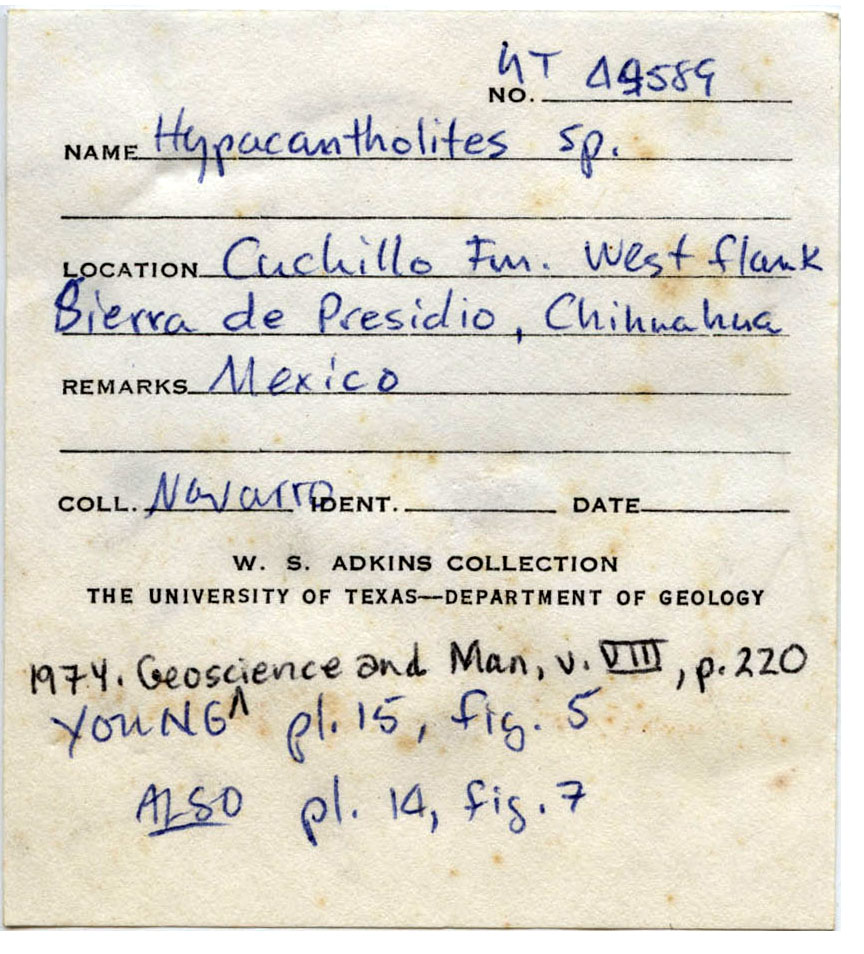 UT
NO. 49589
NAME Hypacantholites sp.
LOCATION Cuchillo Fm. West flank
Sierra de Presidio, Chihuahua
REMARKS Mexico
COLL. Navarro IDENT. DATE
W. S. ADKINS COLLECTION
THE UNIVERSITY OF TEXAS—DEPARTMENT OF GEOLOGY
1974. Geoscience and Man, v. VIII, p. 220
YOUNG ^ pl. 15, fig. 5
ALSO pl. 14, fig. 7